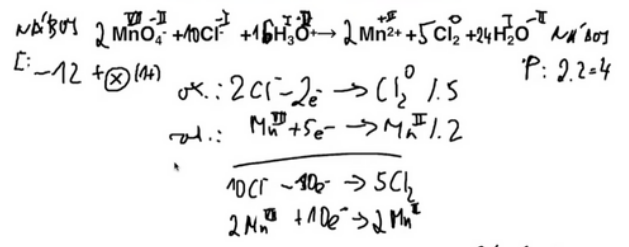 NÁBOJ 2 Mn^VII O4^-II - + 10Cl^-I - + 16H3^I O^-II + → 2 Mn^+II 2+ + 5 Cl2^0 + 24 H2^I O^-II NÁBOJ
L: -12 + ⓧ (1+) P: 2.2=4
ox.: 2Cl⁻ - 2e⁻ → Cl2^0 /.5
red.: Mn^VII + 5e⁻ → Mn^II /.2
10Cl⁻ - 10e⁻ → 5Cl2
2Mn^VII + 10e⁻ → 2Mn^II